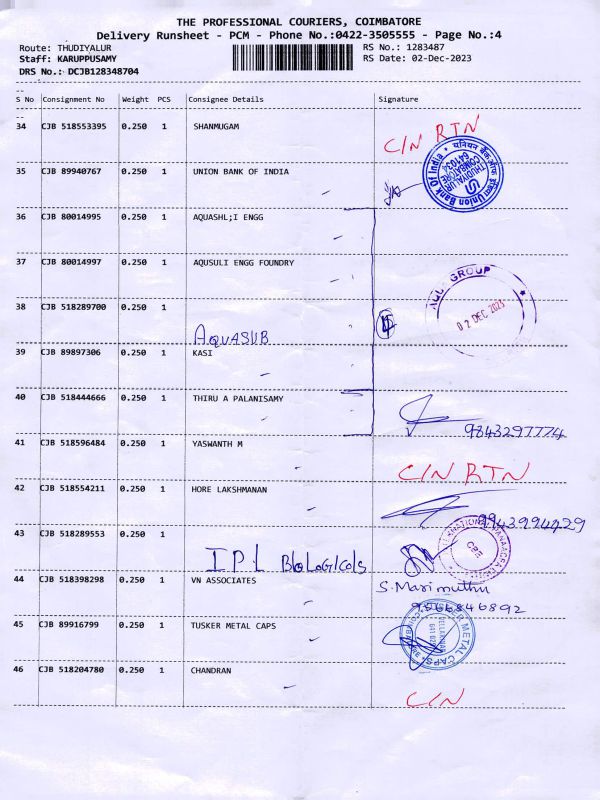 THE PROFESSIONAL COURIERS, COIMBATORE
Delivery Runsheet - PCM - Phone No.:0422-3505555 - Page No.:4
Route: THUDIYALUR RS No.: 1283487
Staff: KARUPPUSAMY RS Date: 02-Dec-2023
DRS No.: DCJB128348704
S No Consignment No Weight PCS Consignee Details Signature
34 CJB 518553395 0.250 1 SHANMUGAM C/N RTN
35 CJB 89940767 0.250 1 UNION BANK OF INDIA
Union Bank Of India
THUDIYALUR
COIMBATORE
641034
36 CJB 80014995 0.250 1 AQUASHL;I ENGG
37 CJB 80014997 0.250 1 AQUSULI ENGG FOUNDRY
GROUP
02 DEC 2023
38 CJB 518289700 0.250 1
AQUASUB
39 CJB 89897306 0.250 1 KASI
40 CJB 518444666 0.250 1 THIRU A PALANISAMY
9843297774
41 CJB 518596484 0.250 1 YASWANTH M
C/N RTN
42 CJB 518554211 0.250 1 HORE LAKSHMANAN
9943994429
43 CJB 518289553 0.250 1
IPL BIOLOGICOLS
44 CJB 518398298 0.250 1 VN ASSOCIATES S. Marimuthu
9566846892
45 CJB 89916799 0.250 1 TUSKER METAL CAPS
METAL CAPS
46 CJB 518204780 0.250 1 CHANDRAN
C/N